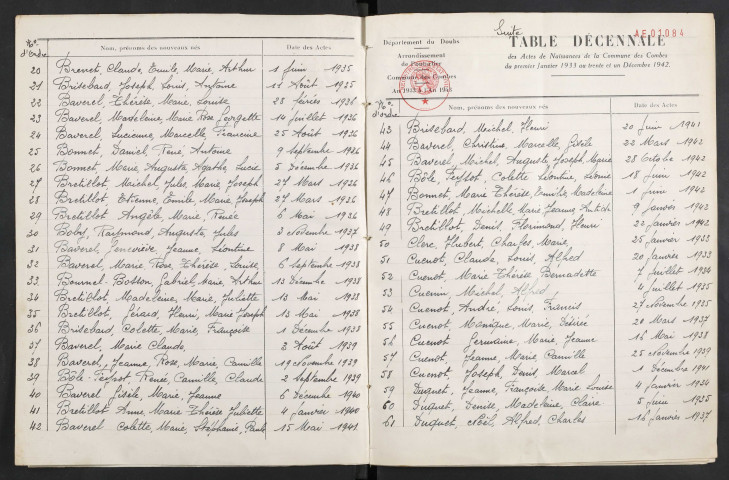 N°
d'Ordre
Nom, prénoms des nouveaux nés
Date des Actes
20 Brenet, Claude, Emile, Marie, Arthur 1 Juin 1935
21 Brisebard, Joseph, Louis, Antoine 12 Août 1935
22 Baverel, Thérèse Marie, Louise 28 février 1936
23 Baverel, Madeleine, Marie Rose, Georgette 14 Juillet 1936
24 Baverel, Lucienne, Marcelle, Francine 25 Août 1936
25 Bonnet, Daniel, René, Antoine 9 Septembre 1936
26 Bonnet, Marie, Auguste, Agathe, Lucie 5 Décembre 1936
27 Bretillot, Michel, Jules, Marie, Joseph 27 Mars 1936
28 Bretillot, Etienne, Emile, Marie, Joseph 27 Mars 1936
29 Bretillot, Angèle, Marie, Renée 6 Mai 1936
30 Boby, Raymond, Auguste, Jules 3 Novembre 1937
31 Baverel, Geneviève, Jeanne, Léontine 8 Mai 1938
32 Baverel, Marie Rose, Thérèse, Louise 6 Septembre 1938
33 Bonnet-Botton, Gabriel, Marie, Arthur 13 Décembre 1938
34 Bretillot, Madeleine, Marie, Juliette 13 Mai 1938
35 Bretillot, Gérard, Henri, Marie, Joseph 13 Mai 1938
36 Brisebard, Colette, Marie, Françoise 1 Décembre 1938
37 Baverel, Marie Claude, 2 Août 1939
38 Baverel, Jeanne, Rose, Marie, Camille 19 Novembre 1939
39 Bôle-Feysot, Renée, Camille, Claude 2 Septembre 1939
40 Baverel, Gisèle, Marie, Jeanne 6 Décembre 1940
41 Bretillot, Anne, Marie, Thérèse, Juliette 4 Janvier 1940
42 Baverel, Colette, Marie, Stéphanie, Paule 15 Mai 1941
Suite
AE01084
Département du Doubs
Arrondissement
de Pontarlier
Commune des Combes
An 1933 à l'An 1943
TABLE DÉCENNALE
des Actes de Naissances de la Commune des Combes
du premier Janvier 1933 au trente et un Décembre 1942.
N°
d'ordre
Nom, prénoms des nouveaux nés
Date des Actes
43 Brisebard, Michel, Henri 20 Juin 1941
44 Baverel, Christine, Marcelle, Gisèle 22 Mars 1942
45 Baverel, Michel, Auguste, Joseph, Marie 28 Octobre 1942
46 Bôle Feysot, Colette, Léontine, Simone 18 Juin 1942
47 Bonnet, Marie Thérèse, Emilie, Madeleine 1 Juin 1942
48 Bretillot, Michelle, Marie, Jeanne, 9 Janvier 1942
49 Bretillot, Denis, Florimond, Henri 22 Janvier 1942
50 Clerc, Hubert, Charles, Marie, 25 Janvier 1933
51 Cuenot, Claude, Louis, Alfred 20 Janvier 1933
52 Cuenot, Marie Thérèse Bernadette 7 Juillet 1934
53 Cuenin, Michel, Alfred, 4 Juillet 1935
54 Cuenot, André, Louis, Francis 27 Novembre 1935
55 Cuenot, Monique, Marie, Désirée 20 Mars 1937
56 Cuenot, Germaine, Marie, Jeanne 16 Mai 1938
57 Cuenot, Jeanne, Marie, Camille 25 Novembre 1939
58 Cuenot, Joseph, Denis, Marcel 1 Décembre 1941
59 Duquet, Jeanne, Françoise, Marie, Louise 4 Janvier 1934
60 Duquet, Denise, Madeleine, Claire 5 Juin 1935
61 Duquet, Noël, Alfred, Charles 16 Janvier 1937